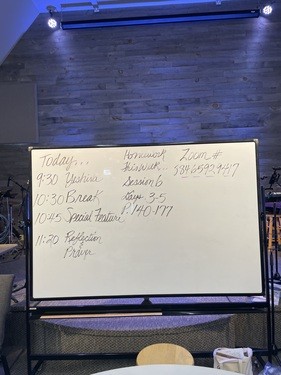 Today...
9:30 Yeshua
10:30 Break
10:45 Special Feature
11:20 Reflection
Prayer
Homework
this week...
Session 6
Days 3-5
P. 140-177
Zoom #